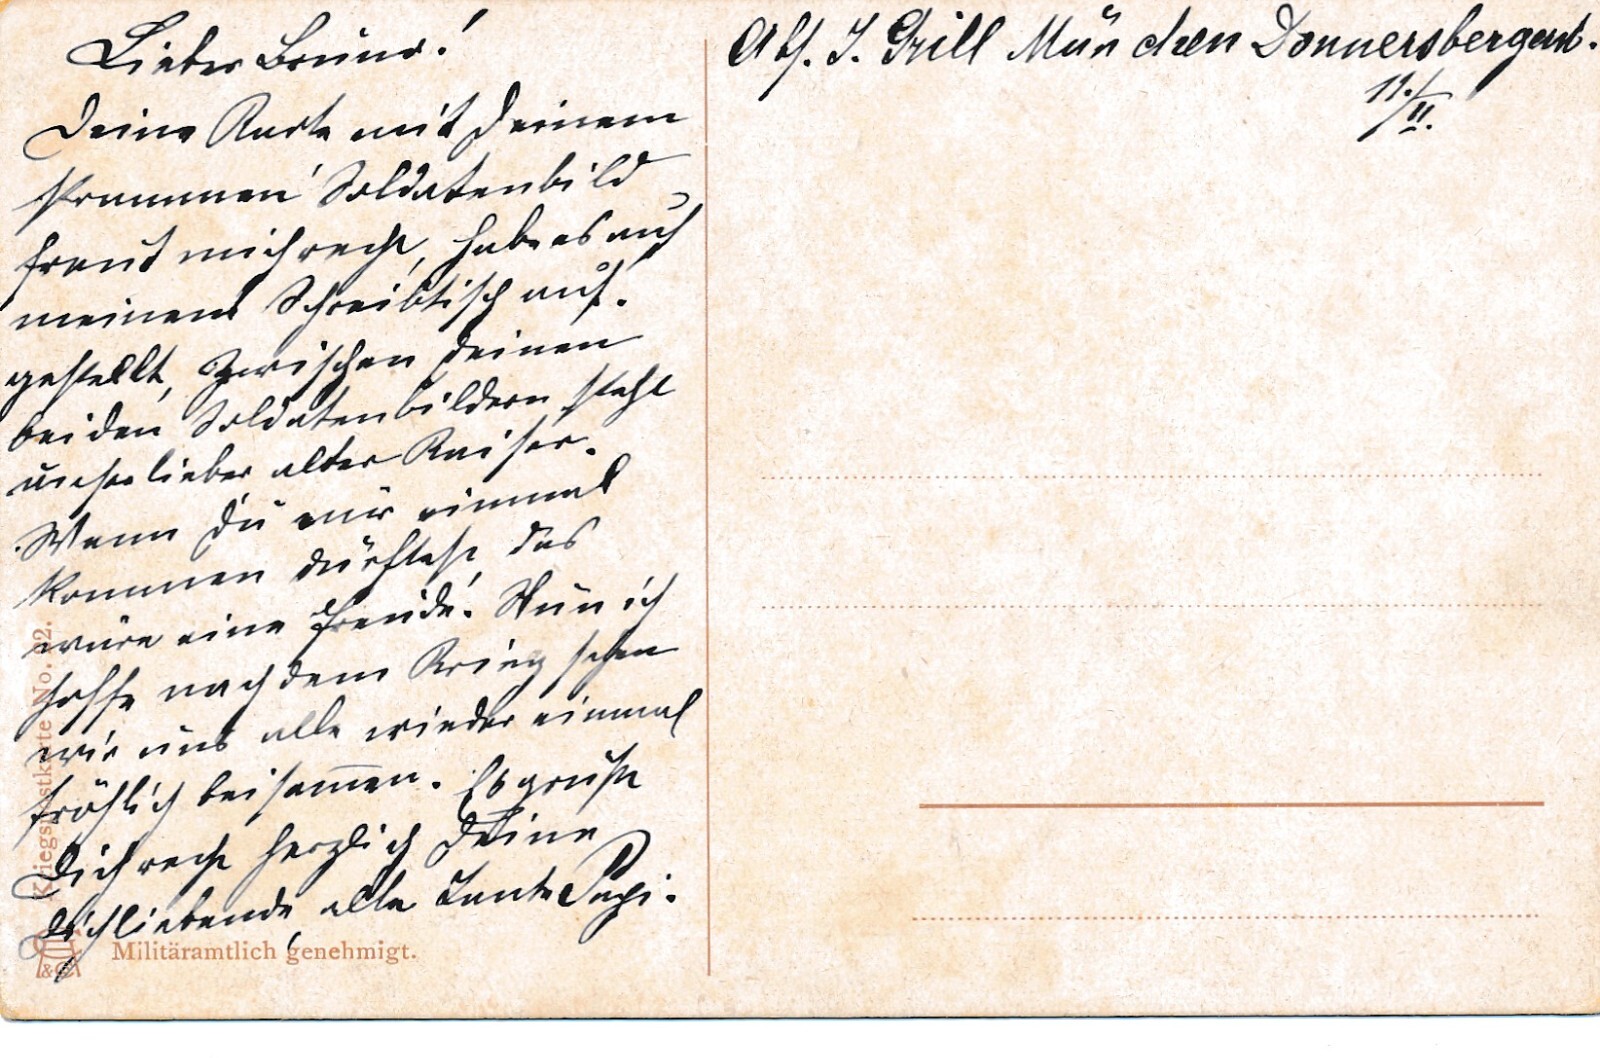 Lieber Bruno!
Deine Karte mit Deinem
strammen Soldatenbild
freut mich recht, habe es auf
meinem Schreibtisch auf-
gestellt, zwischen Deinen
beiden Soldatenbildern steht
unser lieber alter Kaiser.
Wenn Du nur einmal
kommen dürftest, das
wäre eine Freude. Nun ich
hoffe nach dem Krieg sehen
wir uns alle wieder einmal
fröhlich beisammen. Es grüßt
Dich recht herzlich Deine
Dich liebende alte Tante Pepi.
Kriegspostkarte No. 22.
& Co
Militäramtlich genehmigt.
Abs. J. Grill München Donnersbergerst.
11./II.